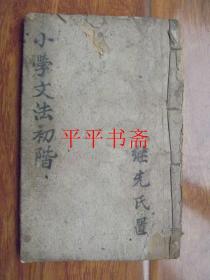 小學文法初階
继先氏置
平平书斋